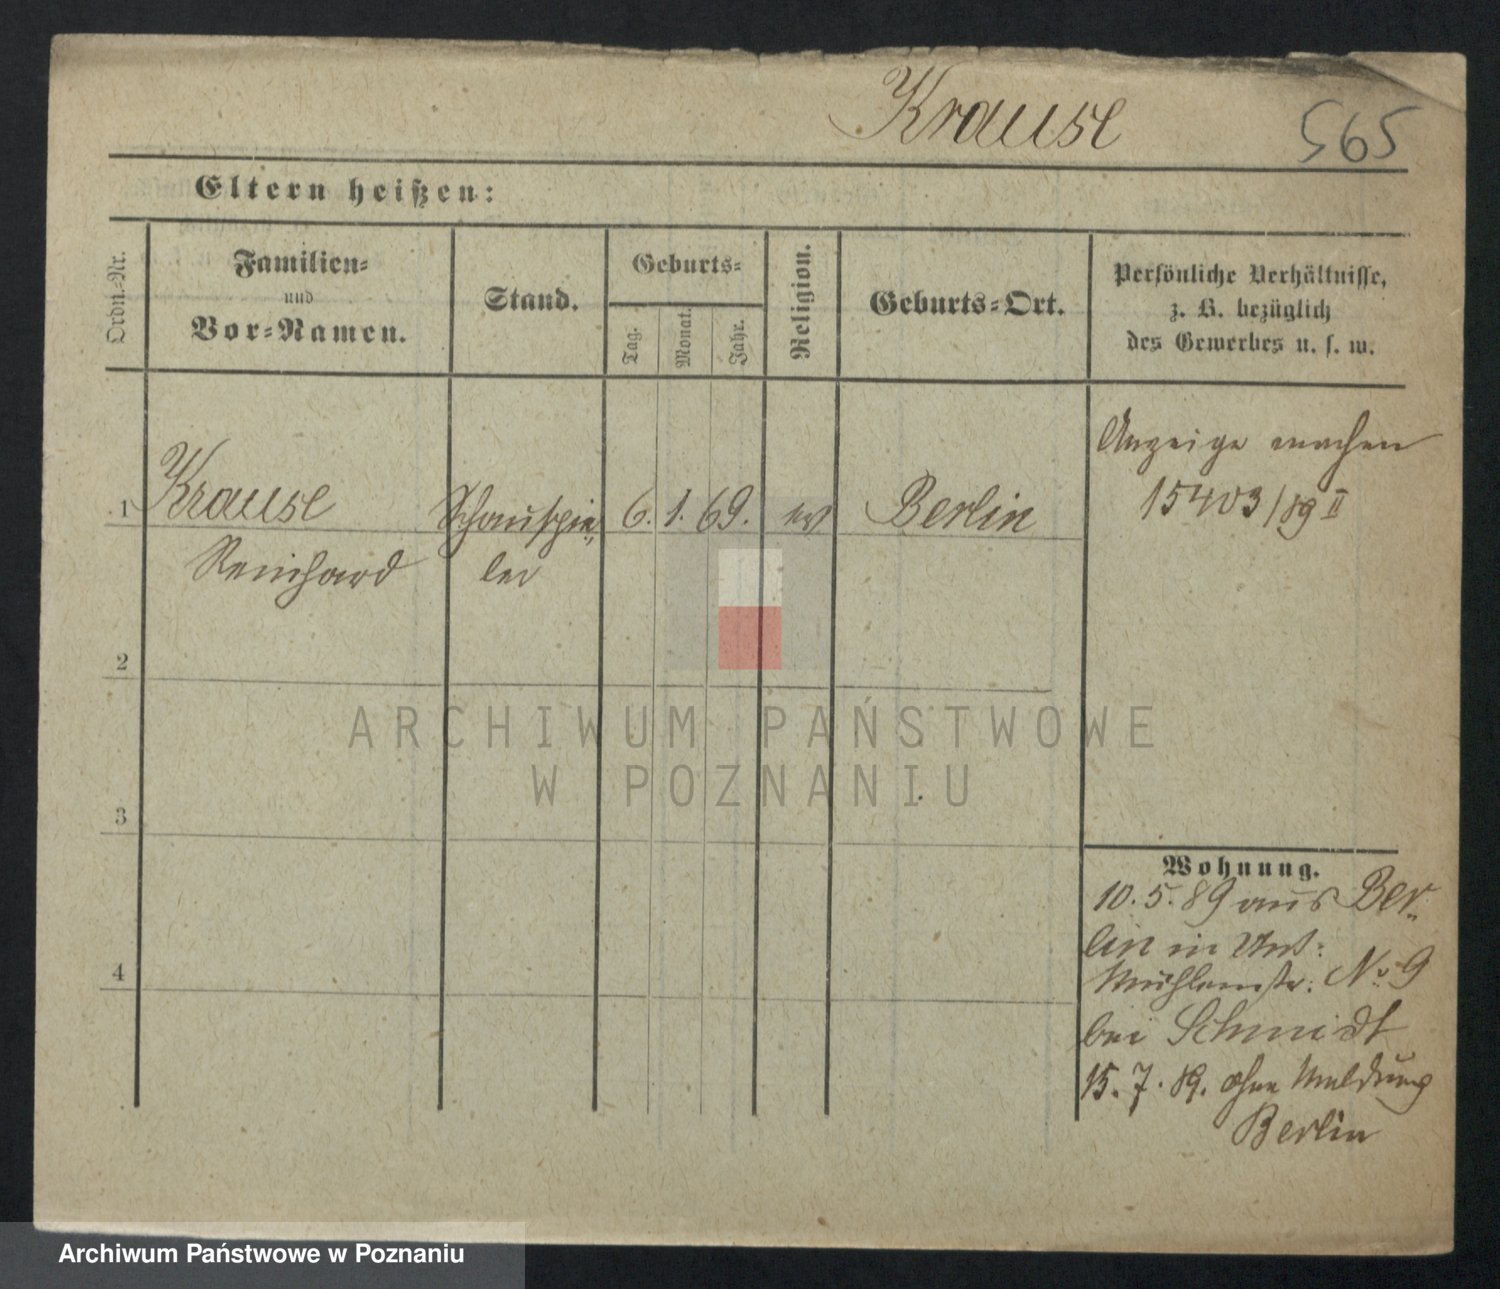 Krause 565
Eltern heißen:
Ordn.-Nr.
Familien-
und
Vor-Namen.
Stand.
Geburts-
Tag.
Monat.
Jahr.
Religion.
Geburts-Ort.
Persönliche Verhältnisse,
z. B. bezüglich
des Gewerbes u. s. w.
Anzeige machen
15403/89 II
1 Krause Schauspie- 6. 1. 69. ev Berlin
Reinhard ler
2
3
4
Wohnung.
10.5.89 aus Ber-
lin in Unt:
Mühlenstr: No 9
bei Schmidt
15.7.89. ohne Meldung
Berlin
ARCHIWUM PAŃSTWOWE
W POZNANIU
Archiwum Państwowe w Poznaniu